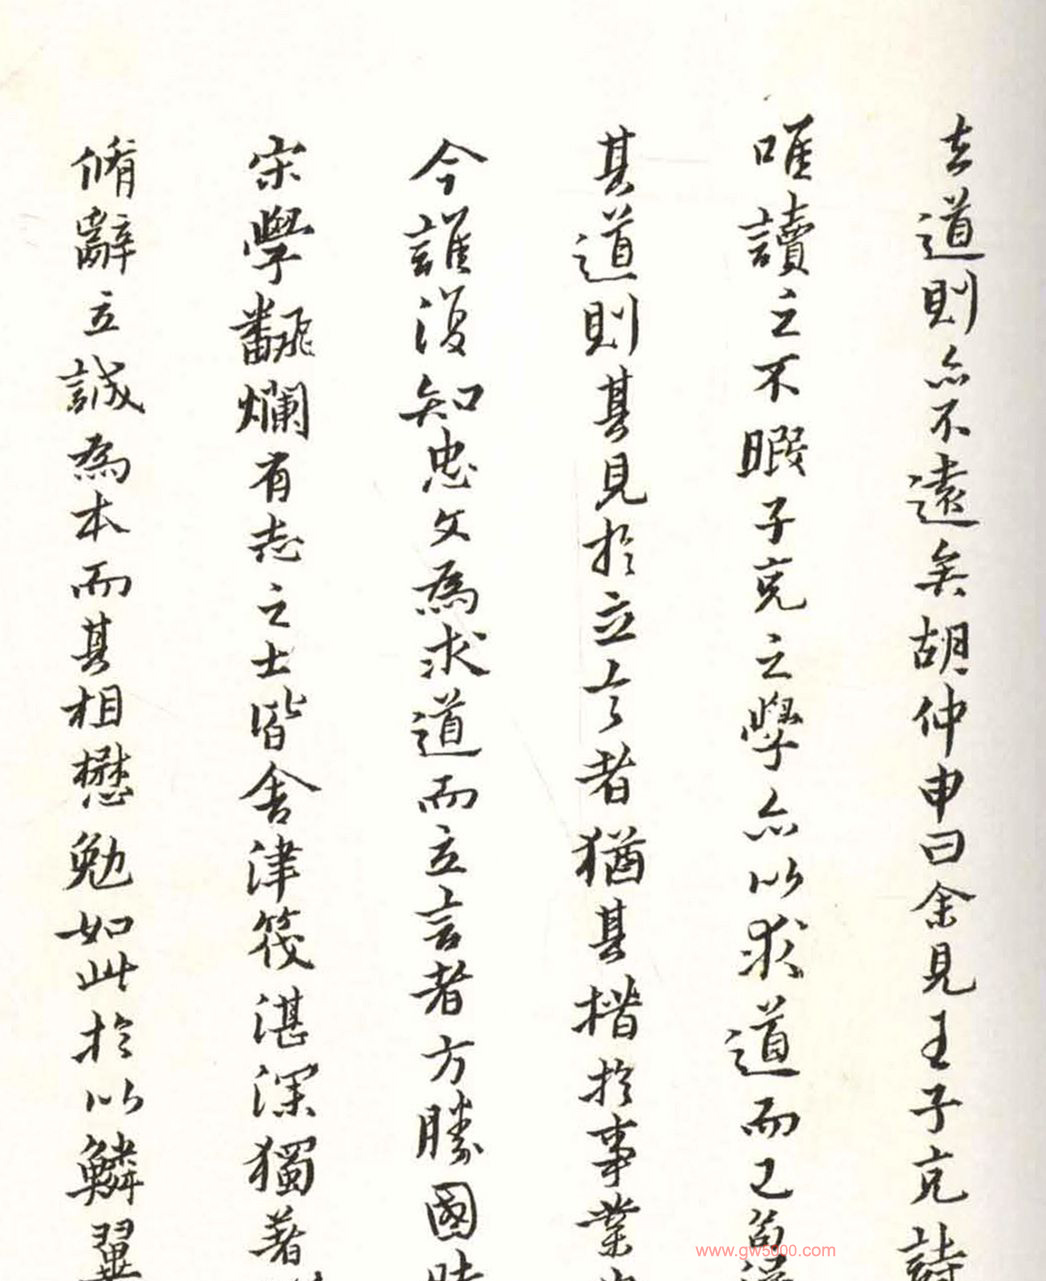 去道則亦不遠矣胡仲申曰余見王子充詩
唯讀之不暇子充之學亦以求道而已苟得
其道則其見於立言者猶其楷於事業
今誰復知忠文為求道而立言者方勝國時
宋學翻爛有志之士皆舍津筏湛深獨著
脩辭立誠為本而其相懋勉如此於以鱗翼
www.gw5000.com